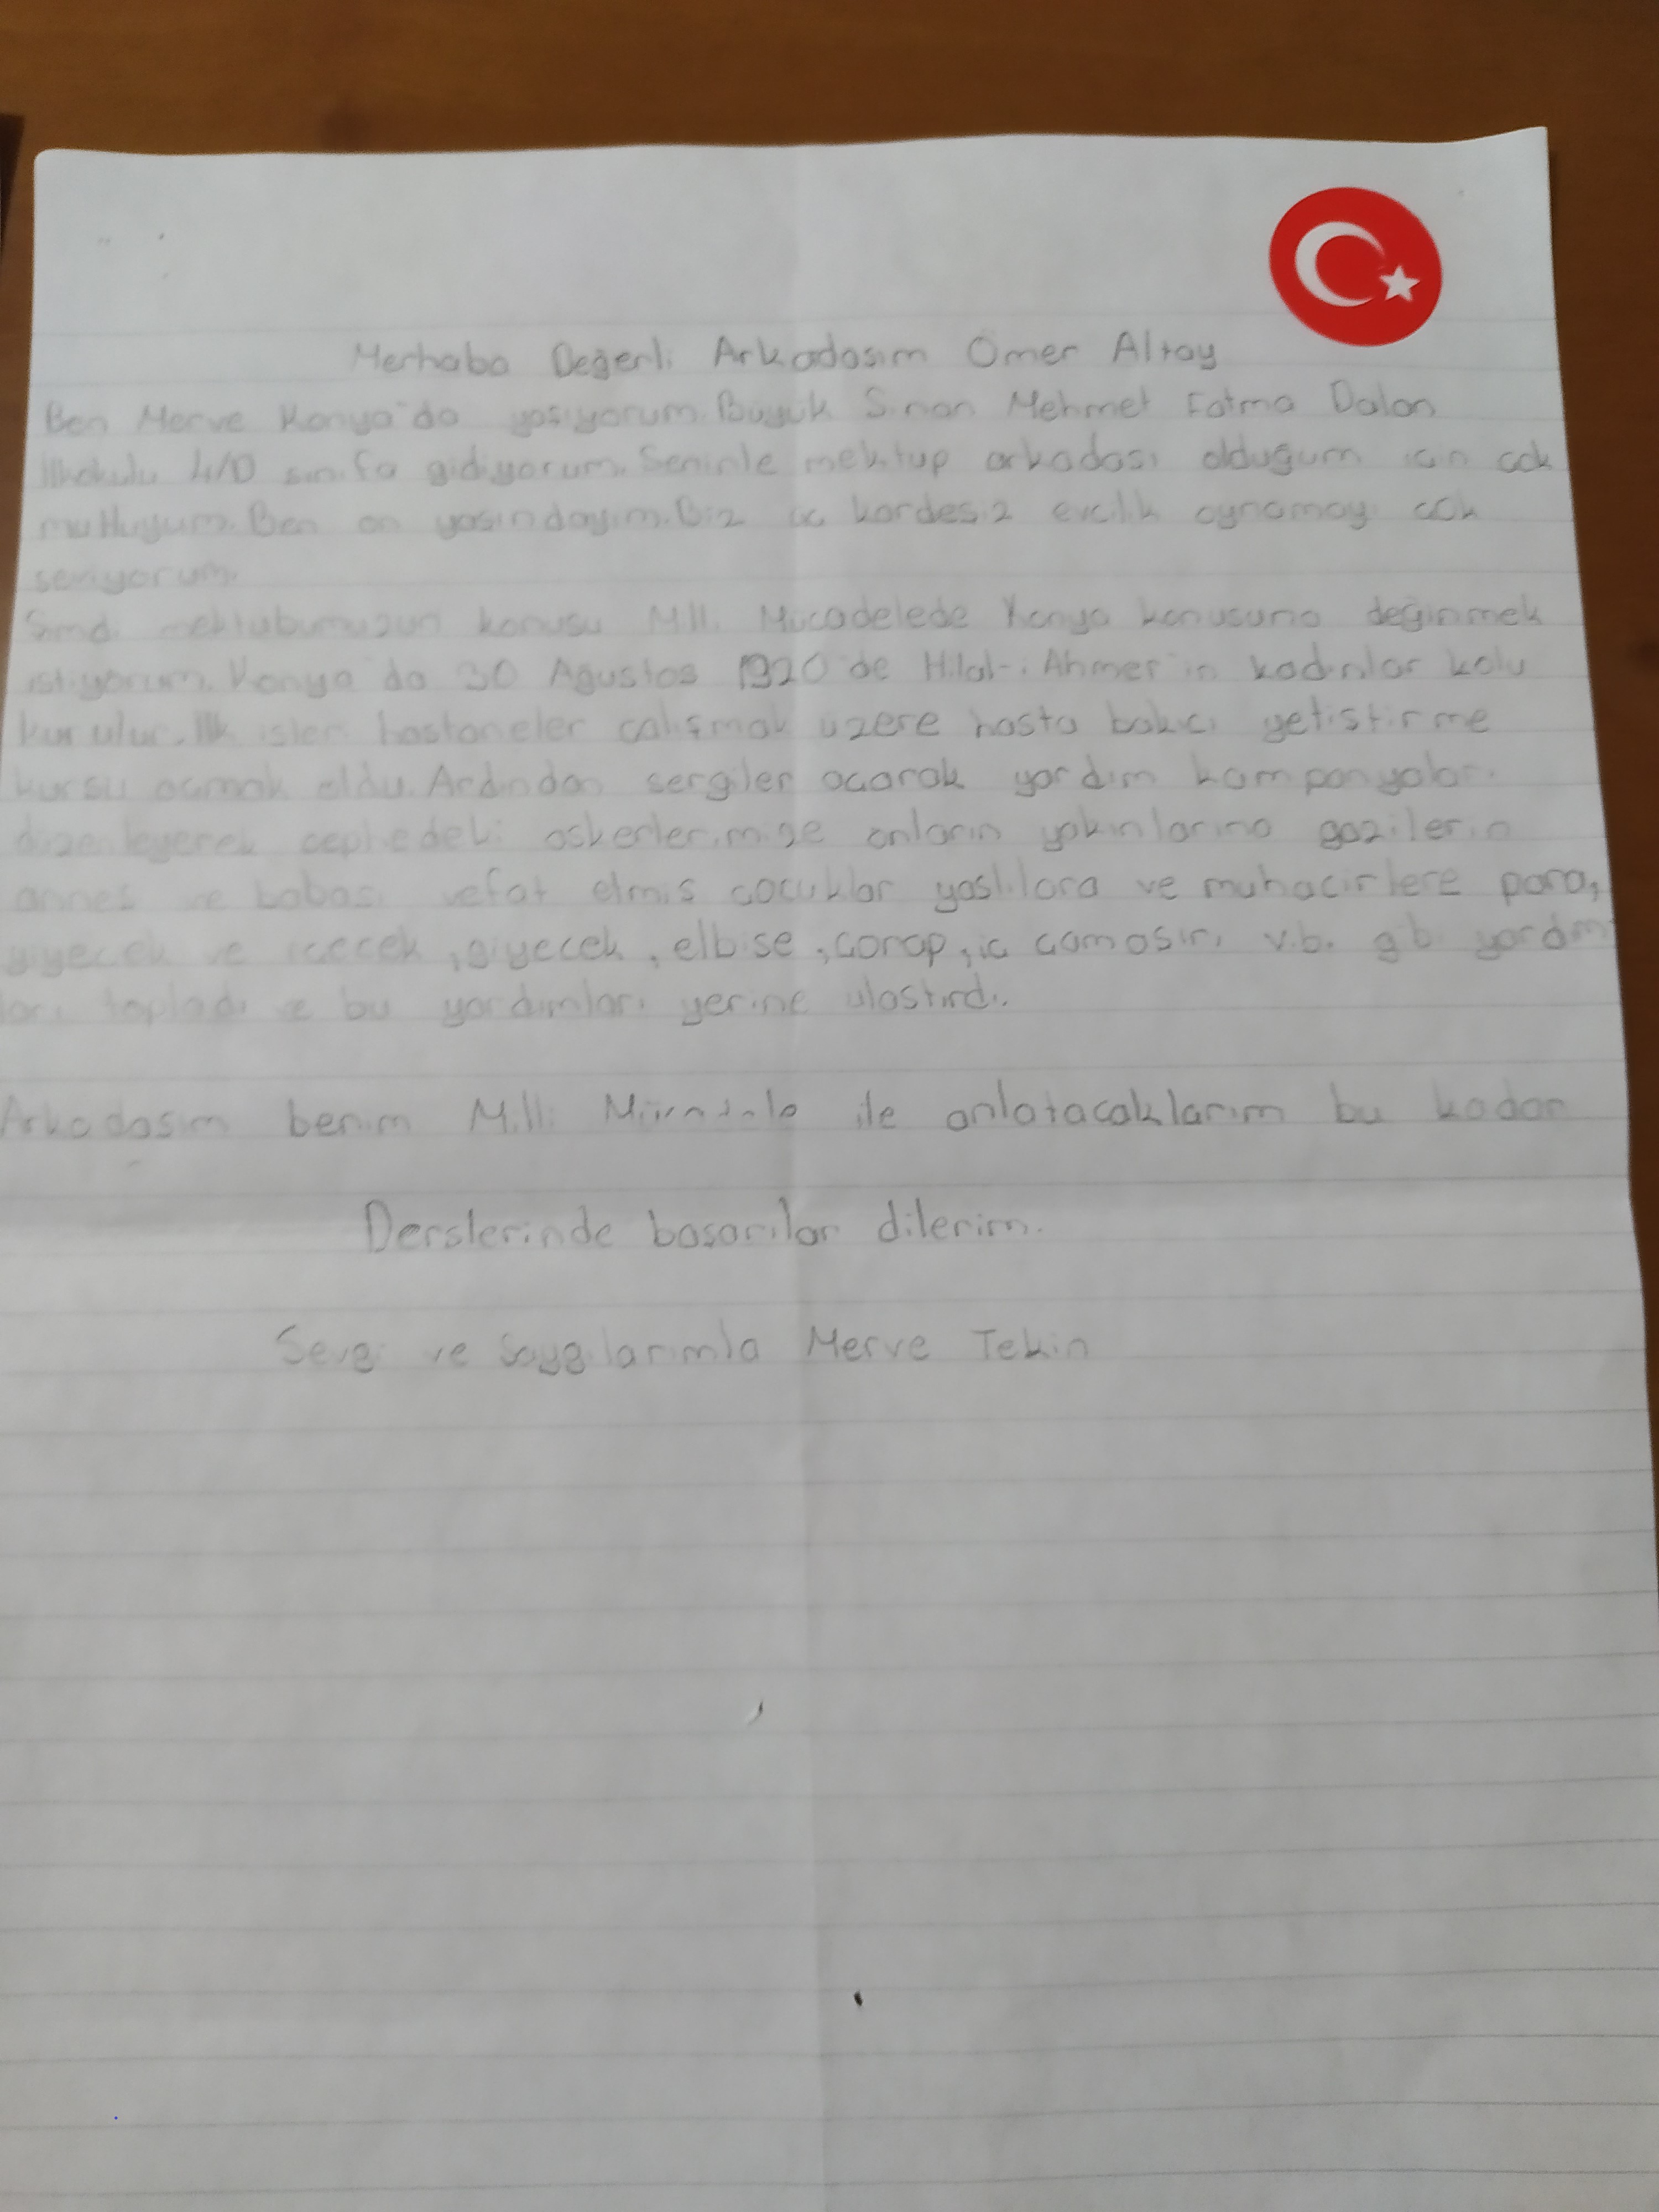 Merhaba Değerli Arkadaşım Ömer Altay
Ben Merve Konya'da yaşıyorum. Büyük Sinan Mehmet Fatma Dalan
İlkokulu 4/D sınıfa gidiyorum. Seninle mektup arkadaşı olduğum için çok
mutluyum. Ben on yaşındayım. Biz üç kardeşiz evcilik oynamayı çok
seviyorum.
Şimdi mektubumuzun konusu Milli Mücadelede Konya konusuna değinmek
istiyorum. Konya'da 30 Ağustos 1920'de Hilal-i Ahmer'in kadınlar kolu
kurulur. İlk işleri hastaneler çalışmak üzere hasta bakıcı yetiştirme
kursu açmak oldu. Ardından sergiler açarak yardım kampanyaları
düzenleyerek cephedeki askerlerimize onların yakınlarına gazilerin
annesi ve babası vefat etmiş çocuklar yaşlılara ve muhacirlere para,
yiyecek ve içecek, giyecek, elbise, çorap, iç çamaşırı v.b. gibi yardım
ları topladı ve bu yardımları yerine ulaştırdı.
Arkadaşım benim Milli ile anlatacaklarım bu kadar
Derslerinde başarılar dilerim.
Sevgi ve Saygılarımla Merve Tekin